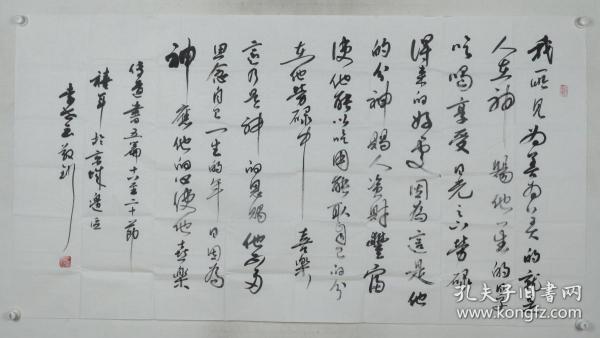 我所見为善为美的就是
人在神 賜他一生的日子
吃喝享受日光之下勞碌
得来的好處因為這是他
的分神 賜人資財豐富
使他能以吃用能取自己的分
在他勞碌中 喜樂
這乃是神的恩賜他不多
思念自己一生的年日因為
神應他的心使他喜樂
传道書五篇十八至二十節
於京城
敬书
孔夫子旧书网
www.kongfz.com